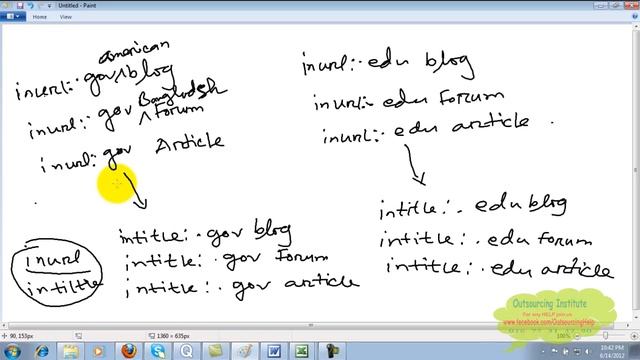 Untitled - Paint
american
inurl:. gov ∧ blog
Bangladesh
inurl:. gov ∧ Forum
inurl:. gov Article
inurl:. edu blog
inurl:. edu Forum
inurl:. edu article .
intitle:. gov blog
intitle:. gov Forum
intitle:. gov article
intitle:. edu blog
intitle:. edu forum
intitle:. edu article
inurl
intiltle
Outsourcing Institute
For any HELP join us
www.facebook.com/OutsourcingHelp
90, 153px
1360 × 635px
100%
10:42 PM